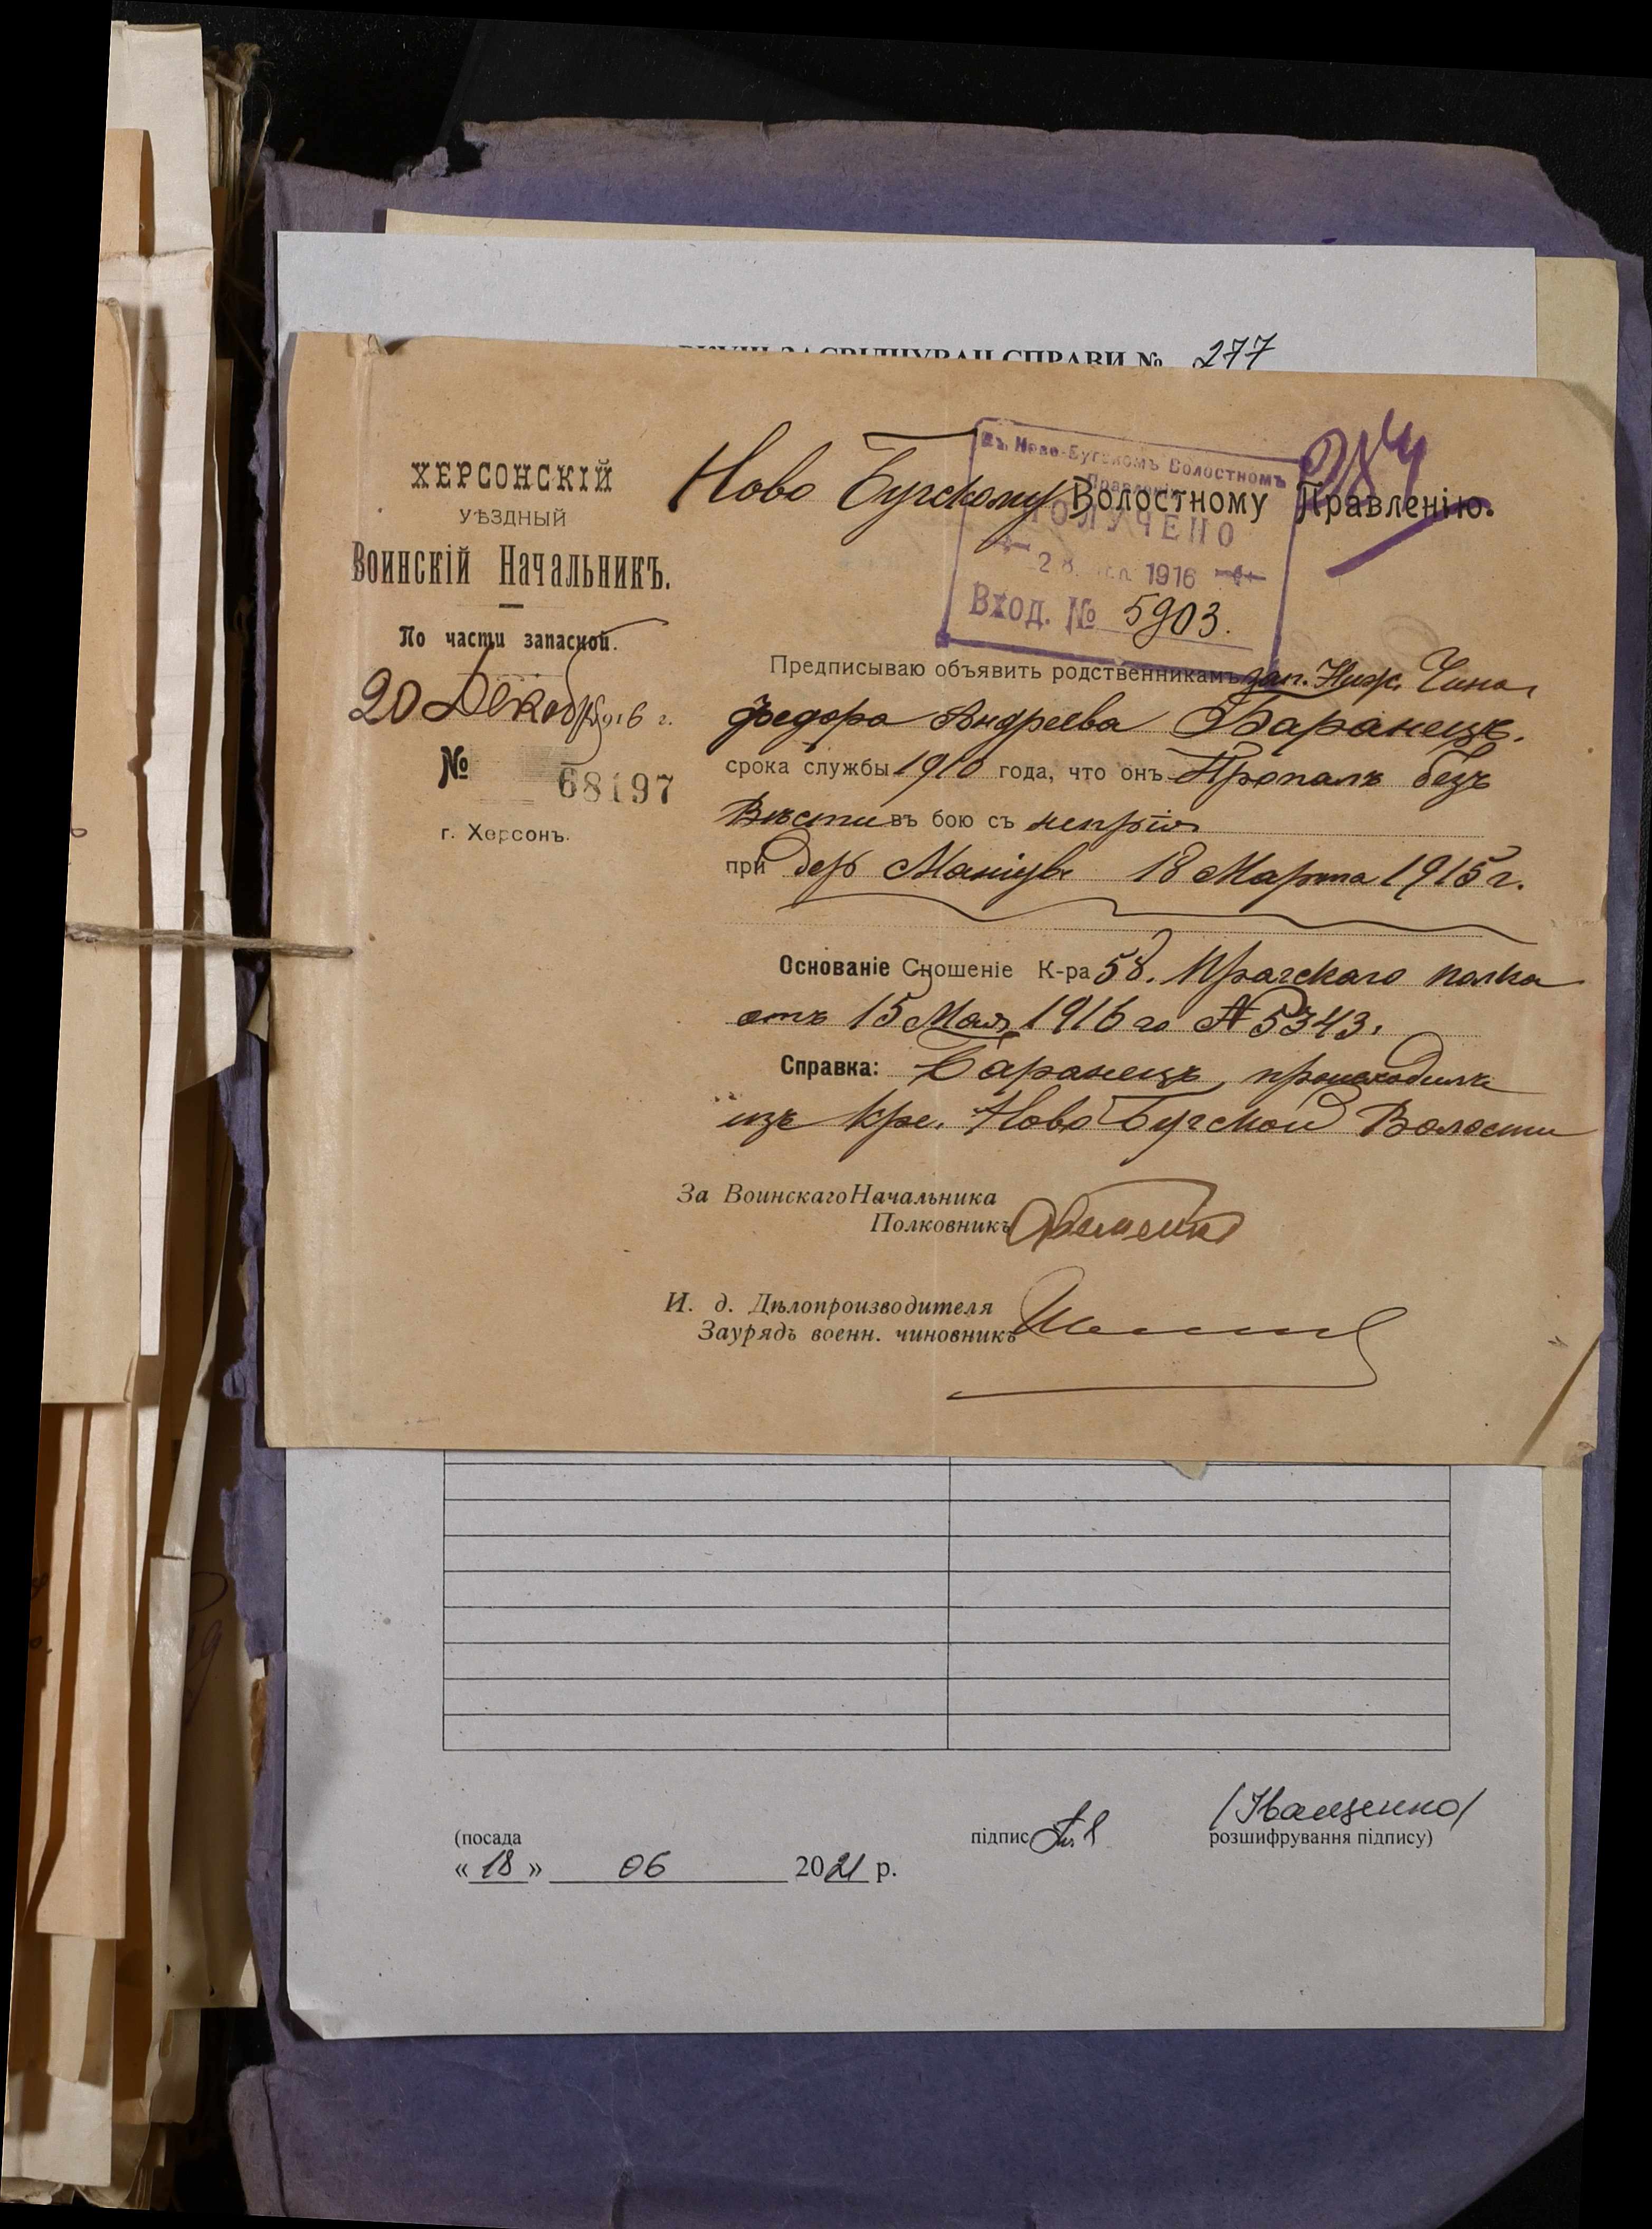 ЗАСВІДЧУВАЧ СПРАВИ № 277
ХЕРСОНСКІЙ
УѢЗДНЫЙ
Воинскій Начальникъ.
По части запасной.
20 Декабря 1916 г.
№ 68197
г. Херсонъ.
Ново Бугскому Волостному Правленію.
284
Въ Ново-Бугскомъ Волостномъ
Правленіи
ПОЛУЧЕНО
28 1916
Вход. № 5903.
Предписываю объявить родственникамъ зап. Ниж. Чина
Федора Андреева Баранецъ.
срока службы 1910 года, что онъ Пропалъ безъ
Вѣсти въ бою съ непріят
при дер Маніувъ 18 Марта 1915 г.
Основаніе Сношеніе К-ра 58. Прагскаго полка
отъ 15 Мая 1916 го № 5343.
Справка: Баранецъ происходилъ
изъ кре. Ново Бугской Волости
За Воинскаго Начальника
Полковникъ
И. д. Дѣлопроизводителя
Заурядъ военн. чиновникъ
(посада
підпис
(Іващенко)
розшифрування підпису)
« 18 » 06 2021 р.